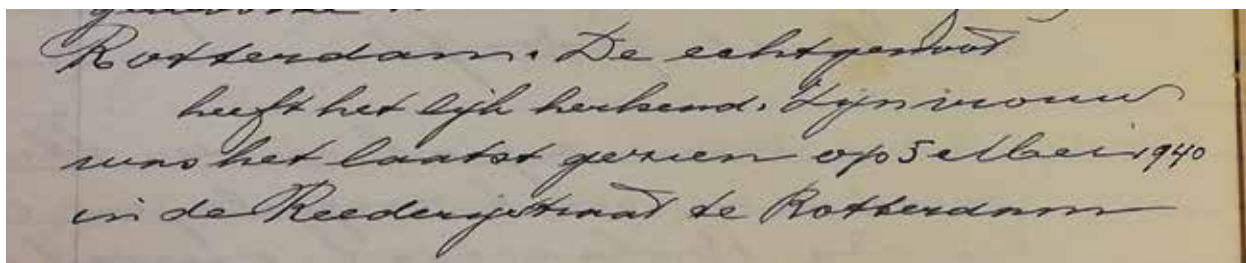 Rotterdam. De echtgenoot
heeft het lijk herkend. Zijn vrouw
was het laatst gezien op 5 Mei 1940
in de Reederijstraat te Rotterdam